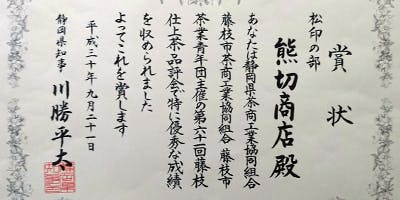 賞状
松印の部
熊切商店殿
あなたは静岡県茶商工業協同組合
藤枝市茶商工業協同組合 藤枝市
茶業青年団主催の第六十一回藤枝
仕上茶品評会で特に優秀な成績
を収められました
よってこれを賞します
平成三十年九月二十一日
静岡県知事 川勝平太